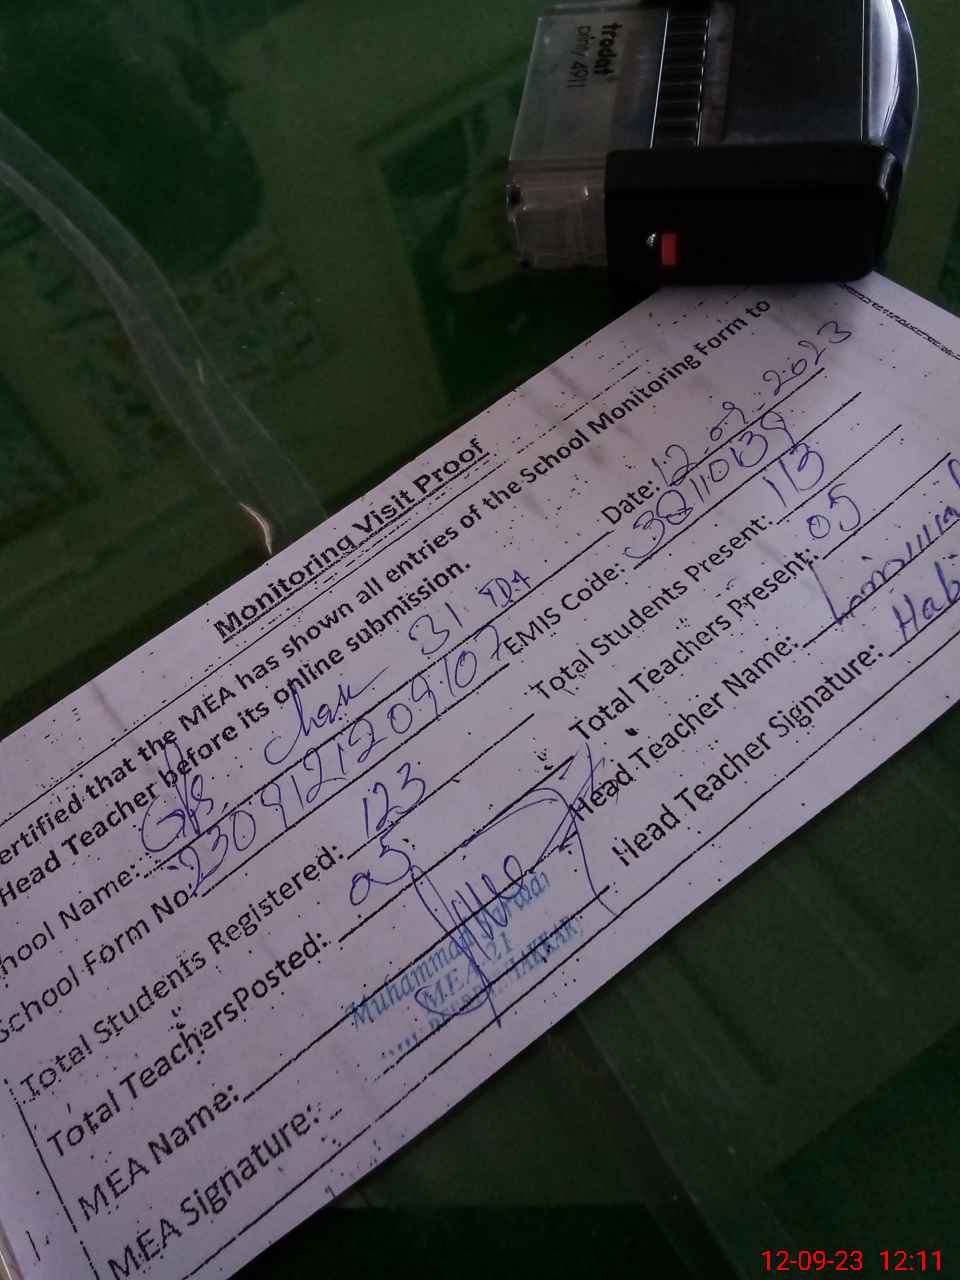 trodat
printy 4911
Monitoring Visit Proof
ertified that the MEA has shown all entries of the School Monitoring Form to
Head Teacher before its online submission.
Date: 12-09-2023
hool Name: GPS Chak 31 TDA
EMIS Code: 38110139
School Form No: 2309121209107
Total Students Present: 113
Total Students Registered: 123
Total Teachers Present: 05
Total TeachersPosted: 05
Head Teacher Name:
MEA Name: Muhammad
MEA 21
Head Teacher Signature: Habi
MEA Signature:
12-09-23 12:11